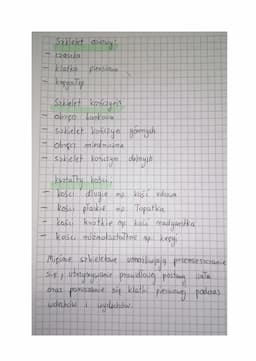 Szkielet osiowy:
- czaszka
- klatka piersiowa
- kręgosłup
Szkielet kończyn:
- obręcz barkowa
- szkielet kończyn górnych
- obręcz miedniczna
- szkielet kończyn dolnych
kształty kości:
- kości długie np. kość udowa
- kości płaskie np. łopatka
- kości krótkie np. kość nadgarstka
- kości różnokształtne np. kręgi
Mięśnie szkieletowe umożliwiają przemieszczanie
się, utrzymywanie prawidłowej postawy ciała
oraz poruszanie się klatki piersiowej podczas
wdechów i wydechów.